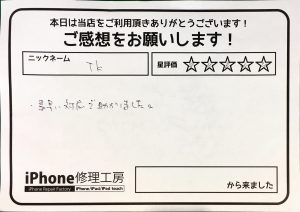 本日は当店をご利用頂きありがとうございます！
ご感想をお願いします！
ニックネーム
TK
星評価 ☆☆☆☆☆
・素早い対応で助かりました。
iPhone修理工房
iPhone Repair Factory iPhone/iPad/iPod touch
から来ました